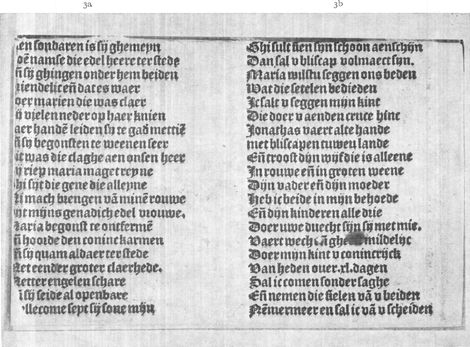 3a
en sondaren is sij ghemeyn
oeñ namse die edel heere ter stede
ñ sij ghingen onder hem beiden
riendelic eñ dat es waer
oer marien die was claer
ij vielen neder op haer knien
aer handē leiden sy te gad mettiē
ñ sy begonsten te weenen seer
it was die claghe aen onsen heer
ij riep maria maget reyne
hi sijt die gene die alleyne
ij mach brengen vā minē rouwe
nt mijns genadich edel vrouwe.
aria begonst te ontfermē
ñ hoorde den coninc karmen
ñ sij quam aldaer ter stede
et eender groter claerhede.
etter engelen schare
ñ sij seide al openbare
llecome sept sij sone mijn
3b
Ghi sult sien sijn schoon aenschijn
Dan sal v bliscap volmaect sijn.
Maria wilstu seggen ons beden
Wat die setelen bedieden
Ic salt v seggen mijn kint
Die doer v aenden cruce hinc
Jonathas vaert alte hande
met bliscapen tuwen lande
Eñ troost dijn wijf die is alleene
In rouwe eñ in groten weene
Dijn vader eñ dijn moeder
Heb ic beide in mijn behoede
Eñ dijn kinderen alle drie
Doer uwe duecht sijn sij met mie.
Vaert wech mildelijc
Doer mijn kint v conincrijck
Van heden ouer .xl. dagen
Sal ic comen sonder saghe
Eñ nemen die sielen vā v beiden
Nēmermeer en sal ic vā v scheiden